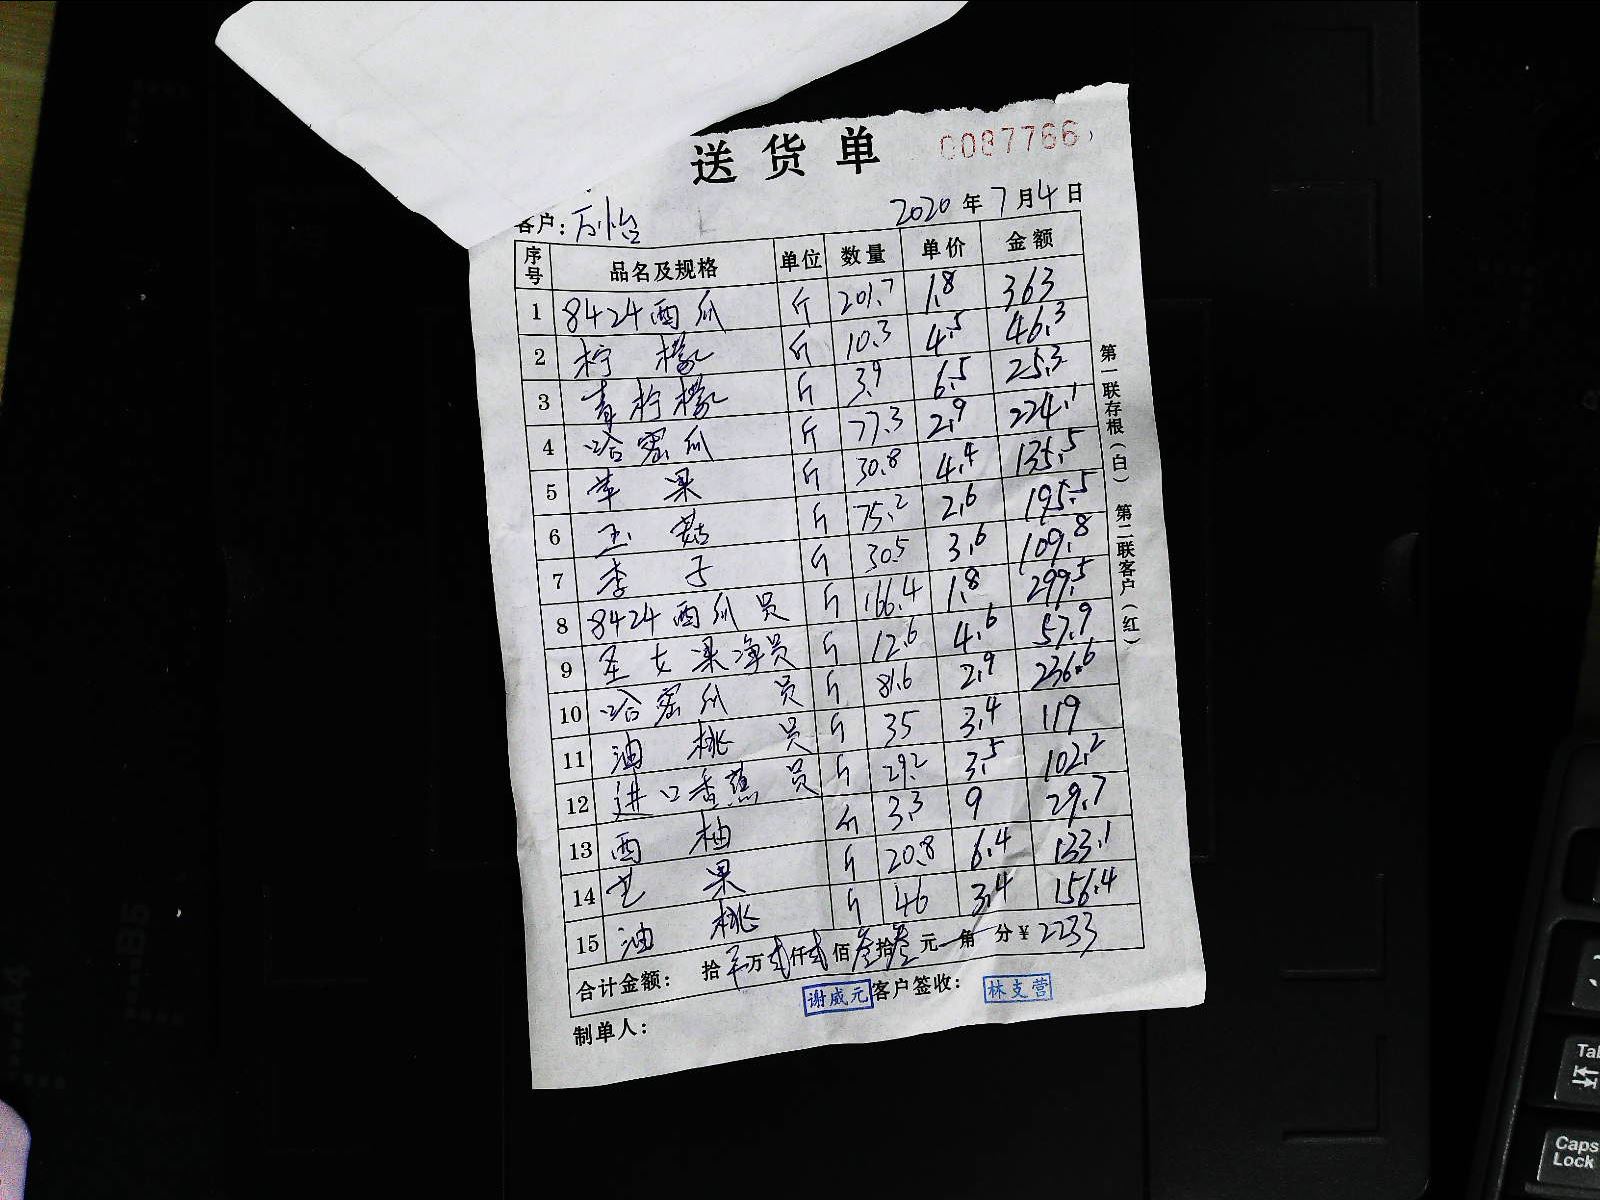 送货单 0087766
客户: 万怡 2020年7月4日
序号 品名及规格 单位 数量 单价 金额
1 8424西瓜 斤 201.7 1.8 363
2 柠檬 斤 10.3 4.5 46.3
3 青柠檬 斤 3.9 6.5 25.3
4 哈蜜瓜 斤 77.3 2.9 224.1
5 苹果 斤 30.8 4.4 135.5
6 玉菇 斤 75.2 2.6 195.5
7 李子 斤 30.5 3.6 109.8
8 8424西瓜 员 斤 166.4 1.8 299.5
9 圣女果净员 斤 12.6 4.6 57.9
10 哈蜜瓜 员 斤 81.6 2.9 236.6
11 油桃 员 斤 35 3.4 119
12 进口香蕉 员 斤 29.2 3.5 102.2
13 西柚 斤 3.3 9 29.7
14 芒果 斤 20.8 6.4 133.1
15 油桃 斤 46 3.4 156.4
合计金额: 拾 万贰仟贰佰叁拾叁元 角 分¥2233
制单人: 谢威元 客户签收: 林支营
第一联存根(白) 第二联客户(红)
A4
B5
Tab
Caps Lock